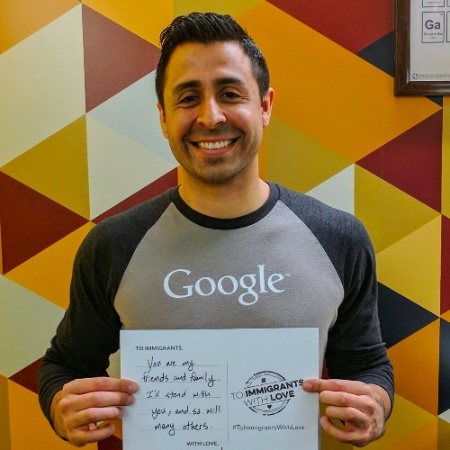 Ga
Google
TO IMMIGRANTS,
You are my
friends and family.
I'll stand with
you, and so will
many others.
WITH LOVE,
#TO IMMIGRANTS
WITH LOVE
#ToImmigrantsWithLove